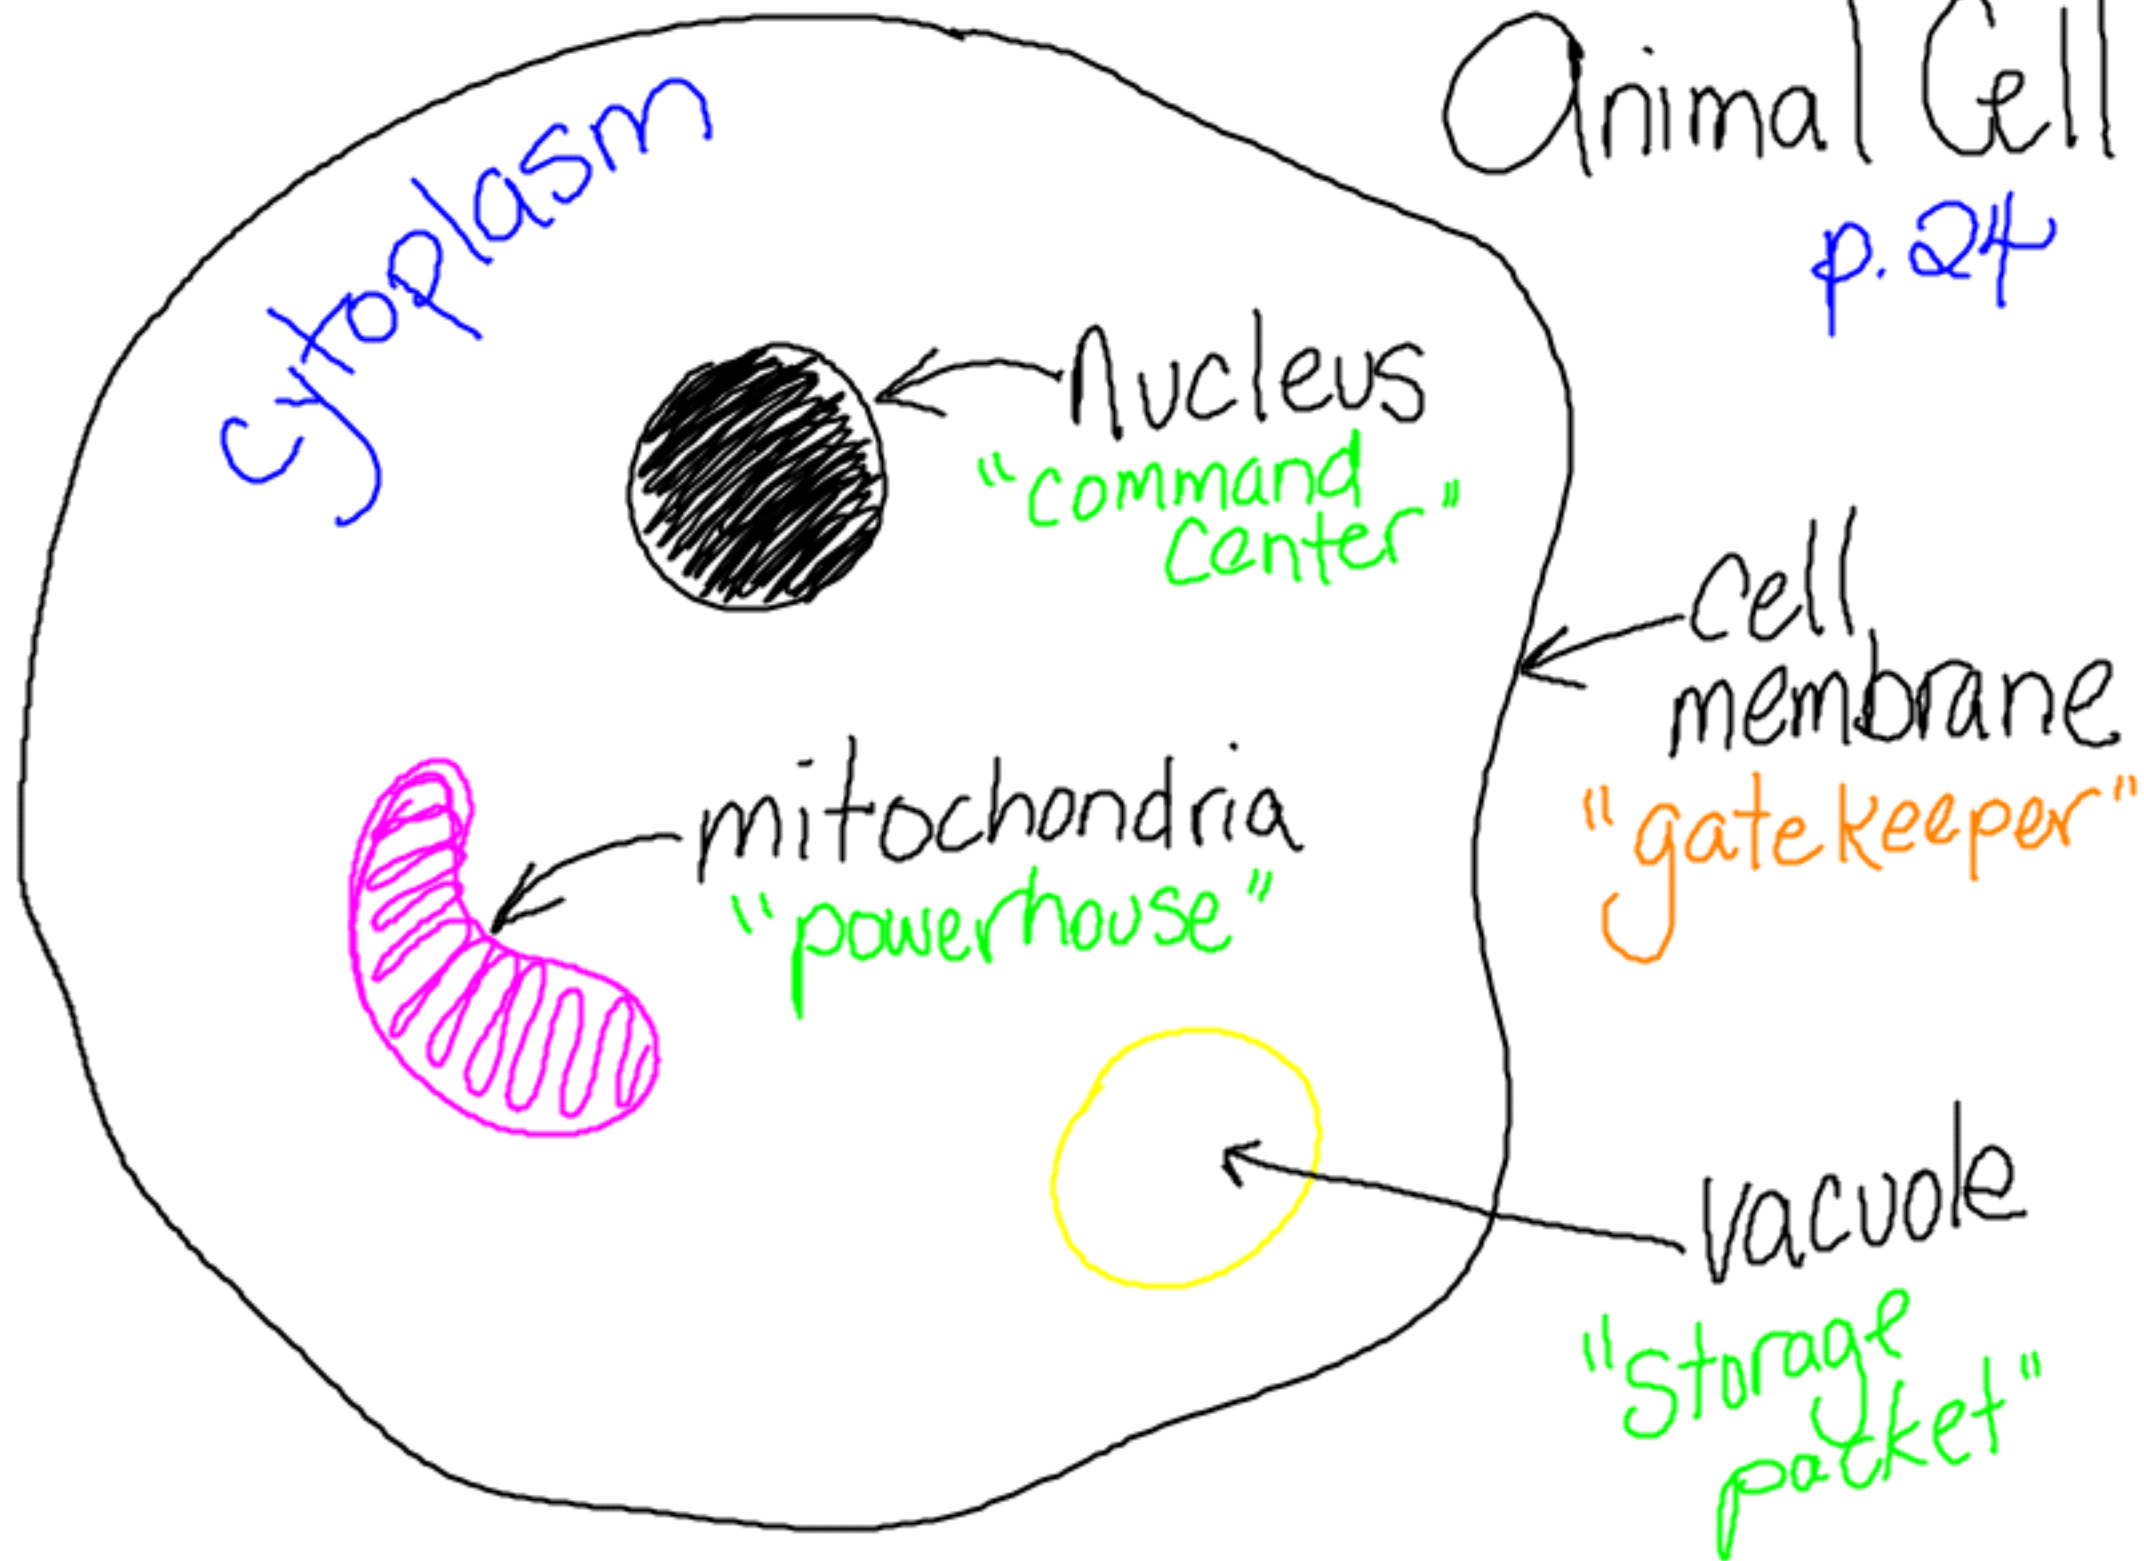 Animal Cell
p.24
cytoplasm
Nucleus
"command
center"
cell
membrane
"gatekeeper"
mitochondria
"powerhouse"
vacuole
"storage
packet"